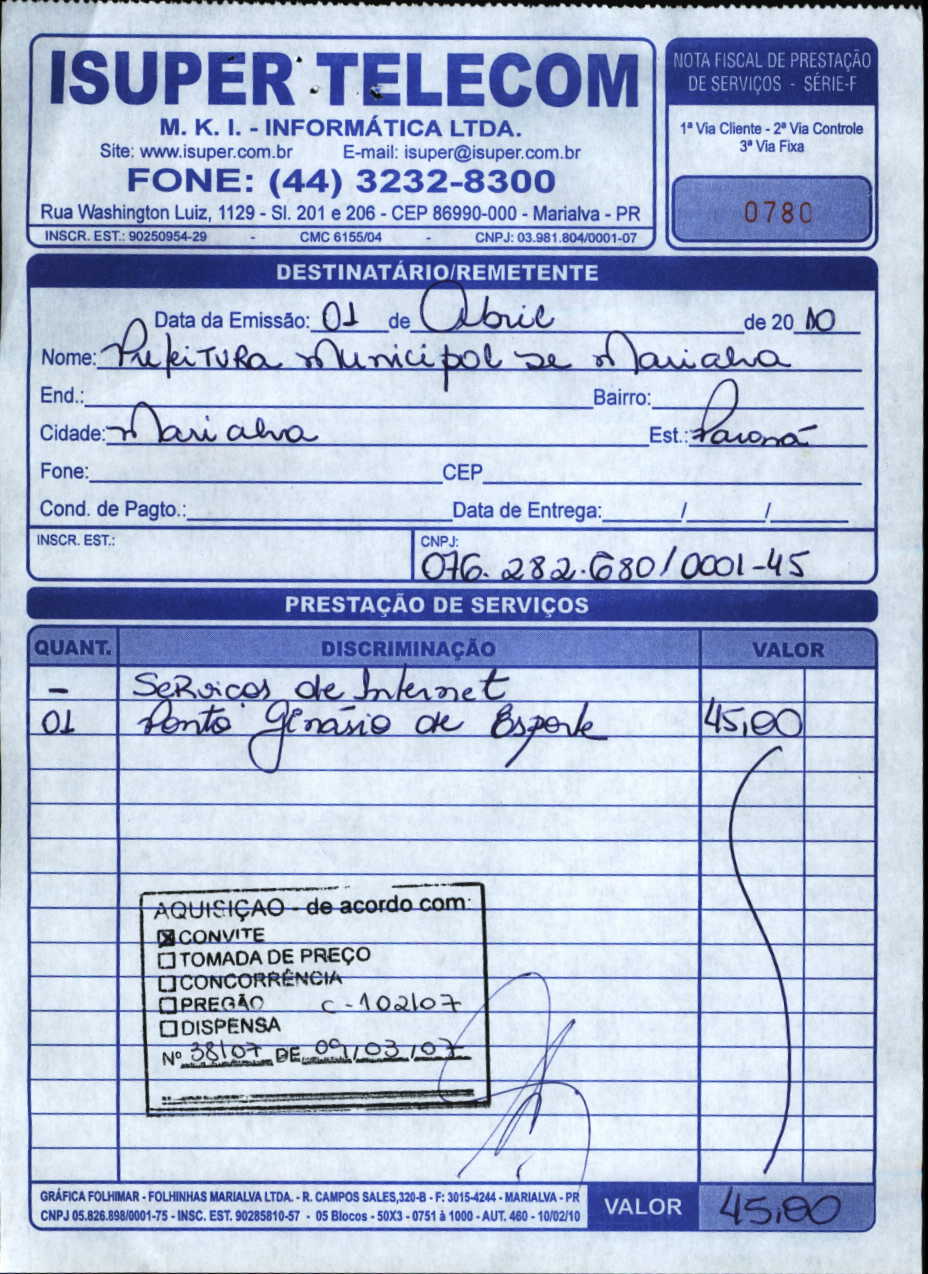 ISUPER TELECOM
M. K. I. - INFORMÁTICA LTDA.
Site: www.isuper.com.br E-mail: isuper@isuper.com.br
FONE: (44) 3232-8300
Rua Washington Luiz, 1129 - Sl. 201 e 206 - CEP 86990-000 - Marialva - PR
INSCR. EST.: 90250954-29 - CMC 6155/04 - CNPJ: 03.981.804/0001-07
NOTA FISCAL DE PRESTAÇÃO
DE SERVIÇOS - SÉRIE-F
1ª Via Cliente - 2ª Via Controle
3ª Via Fixa
0780
DESTINATÁRIO/REMETENTE
Data da Emissão: 01 de Abril de 20 10
Nome: Prefeitura Municipal de Marialva
End.: Bairro:
Cidade: Marialva Est.: Paraná
Fone: CEP
Cond. de Pagto.: Data de Entrega: / /
INSCR. EST.: CNPJ:
076.282.680/0001-45
PRESTAÇÃO DE SERVIÇOS
QUANT. DISCRIMINAÇÃO VALOR
- Serviços de Internet
01 Ponto Ginásio de Esporte 45,00
AQUISIÇAO - de acordo com:
☒ CONVITE
☐ TOMADA DE PREÇO
☐ CONCORRÊNCIA
☐ PREGÃO C-102/07
☐ DISPENSA
Nº 38/07 DE 09/03/07
GRÁFICA FOLHIMAR - FOLHINHAS MARIALVA LTDA. - R. CAMPOS SALES,320-B - F: 3015-4244 - MARIALVA - PR
CNPJ 05.826.898/0001-75 - INSC. EST. 90285810-57 - 05 Blocos - 50X3 - 0751 à 1000 - AUT. 460 - 10/02/10
VALOR 45,00